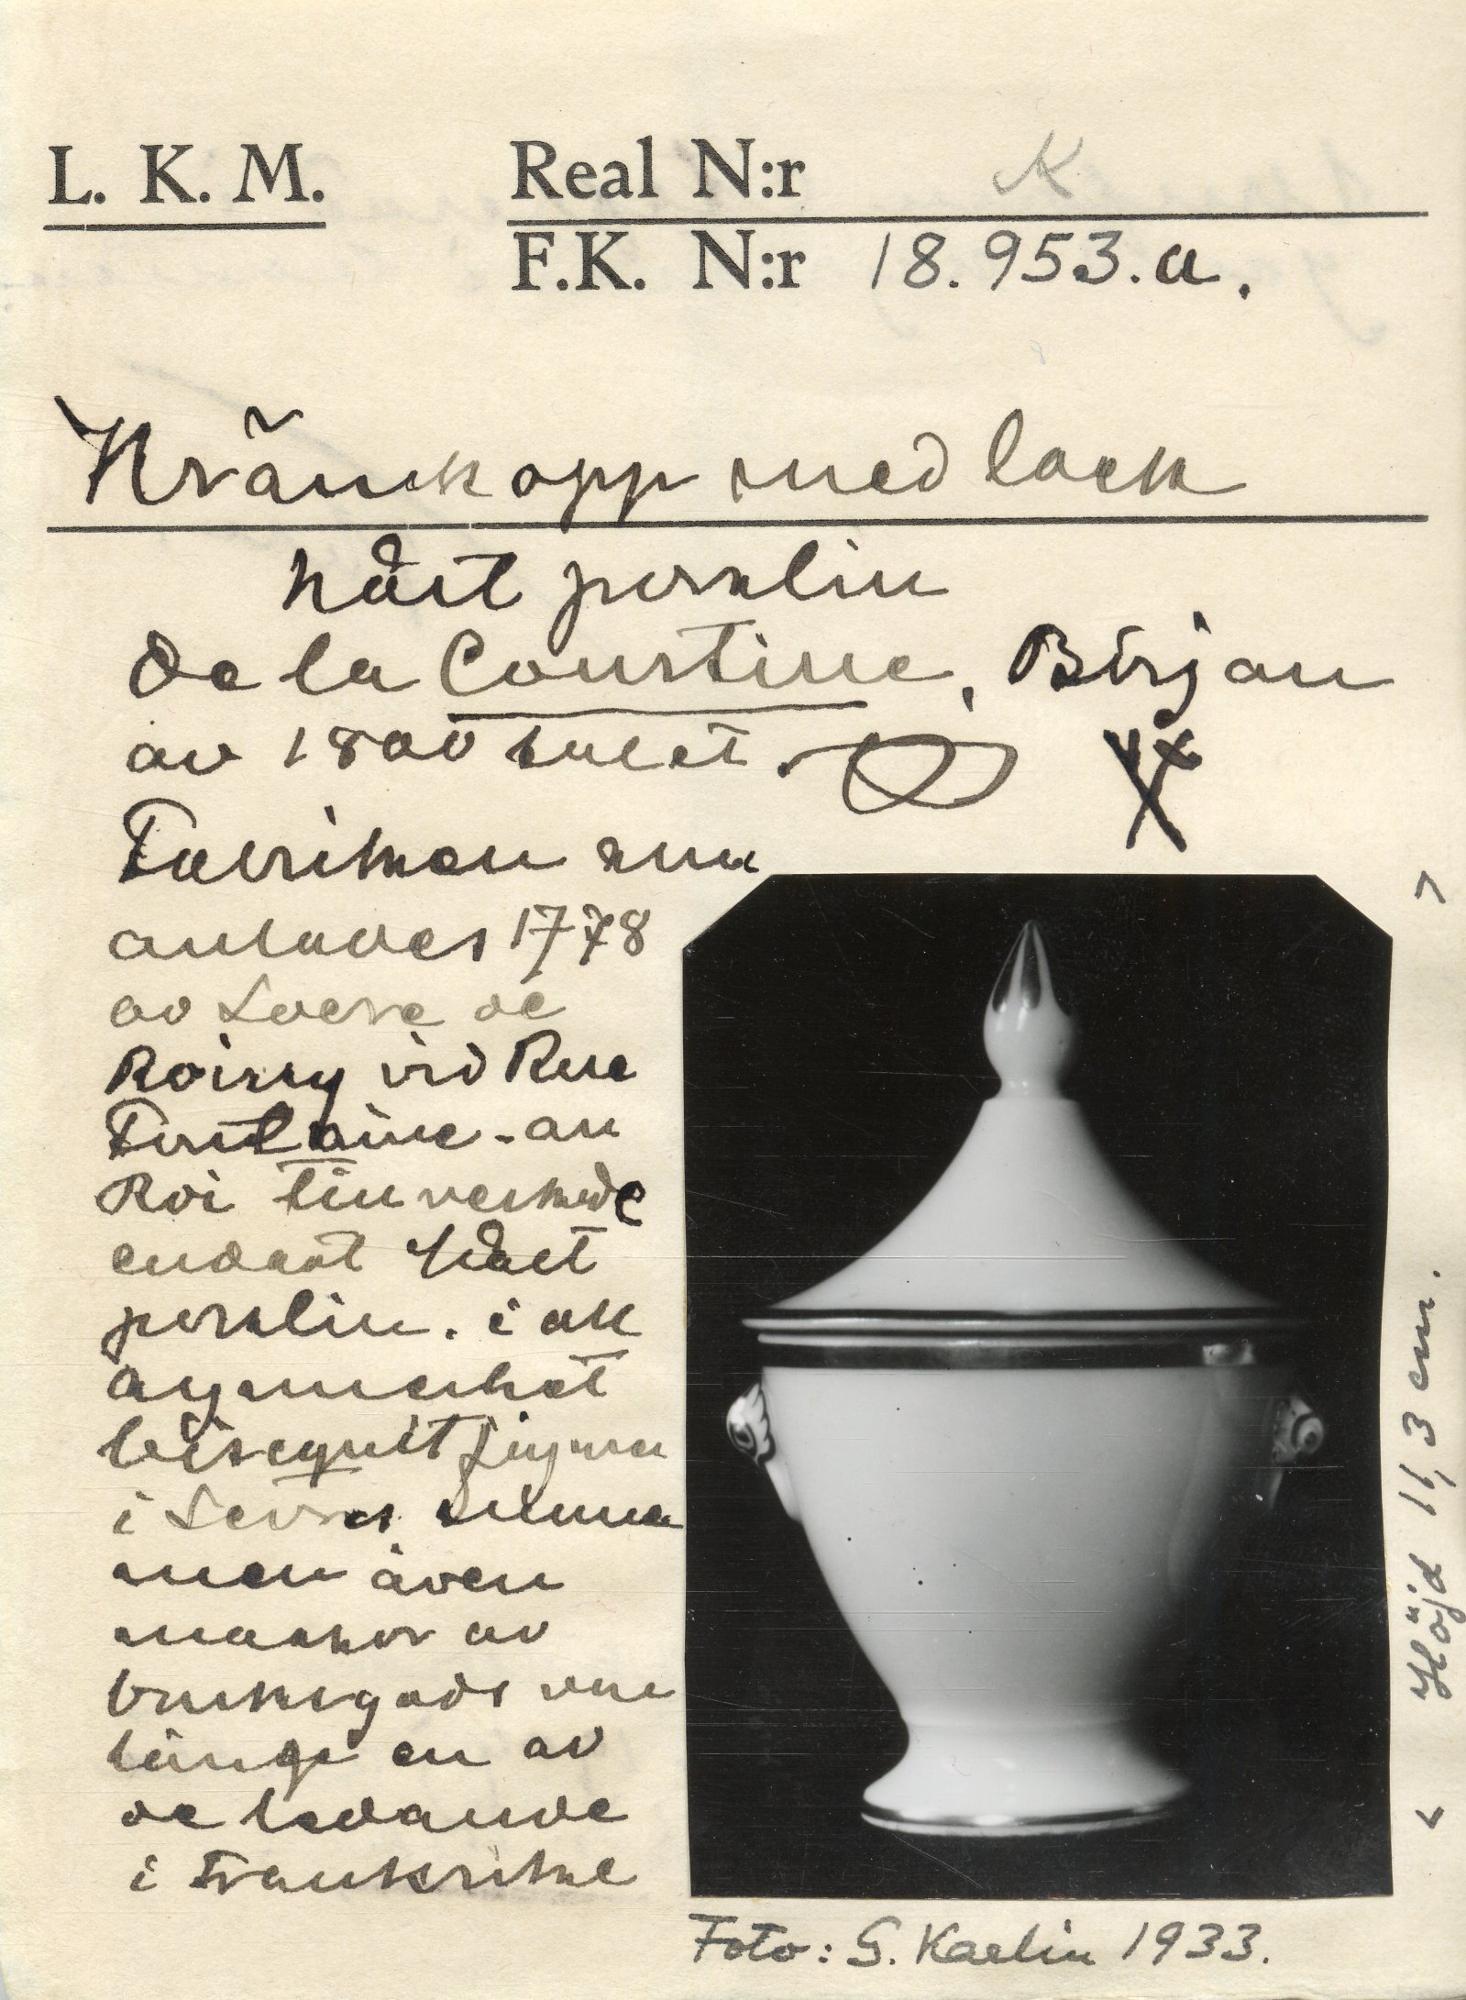 L. K. M.
Real N:r K
F.K. N:r 18.953.a.
Krämkopp med lock
hårt porslin
De la Courtine, Början
av 1800 talet.
Fabriken som
anlades 1778
av Locre de
Roissy vid Rue
Fontaine-au
Roi tillverkade
endast hårt
porslin. i all
synnerhet
bisquitfigurer
i Sèvres
men även
massor av
bruksgods var
länge en av
de ledande
i Frankrike
Höjd 11,3 cm.
Foto: G. Kaelin 1933.